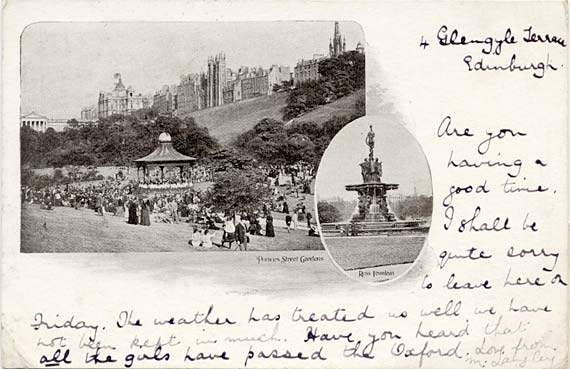 4 Glengyle Terrace
Edinburgh.
Are you
having a
good time.
I shall be
quite sorry
to leave here on
Princes Street Gardens
Ross Fountain
Friday. The weather has treated us well we have
not been kept in much. Have you heard that
all the girls have passed the Oxford. Love from